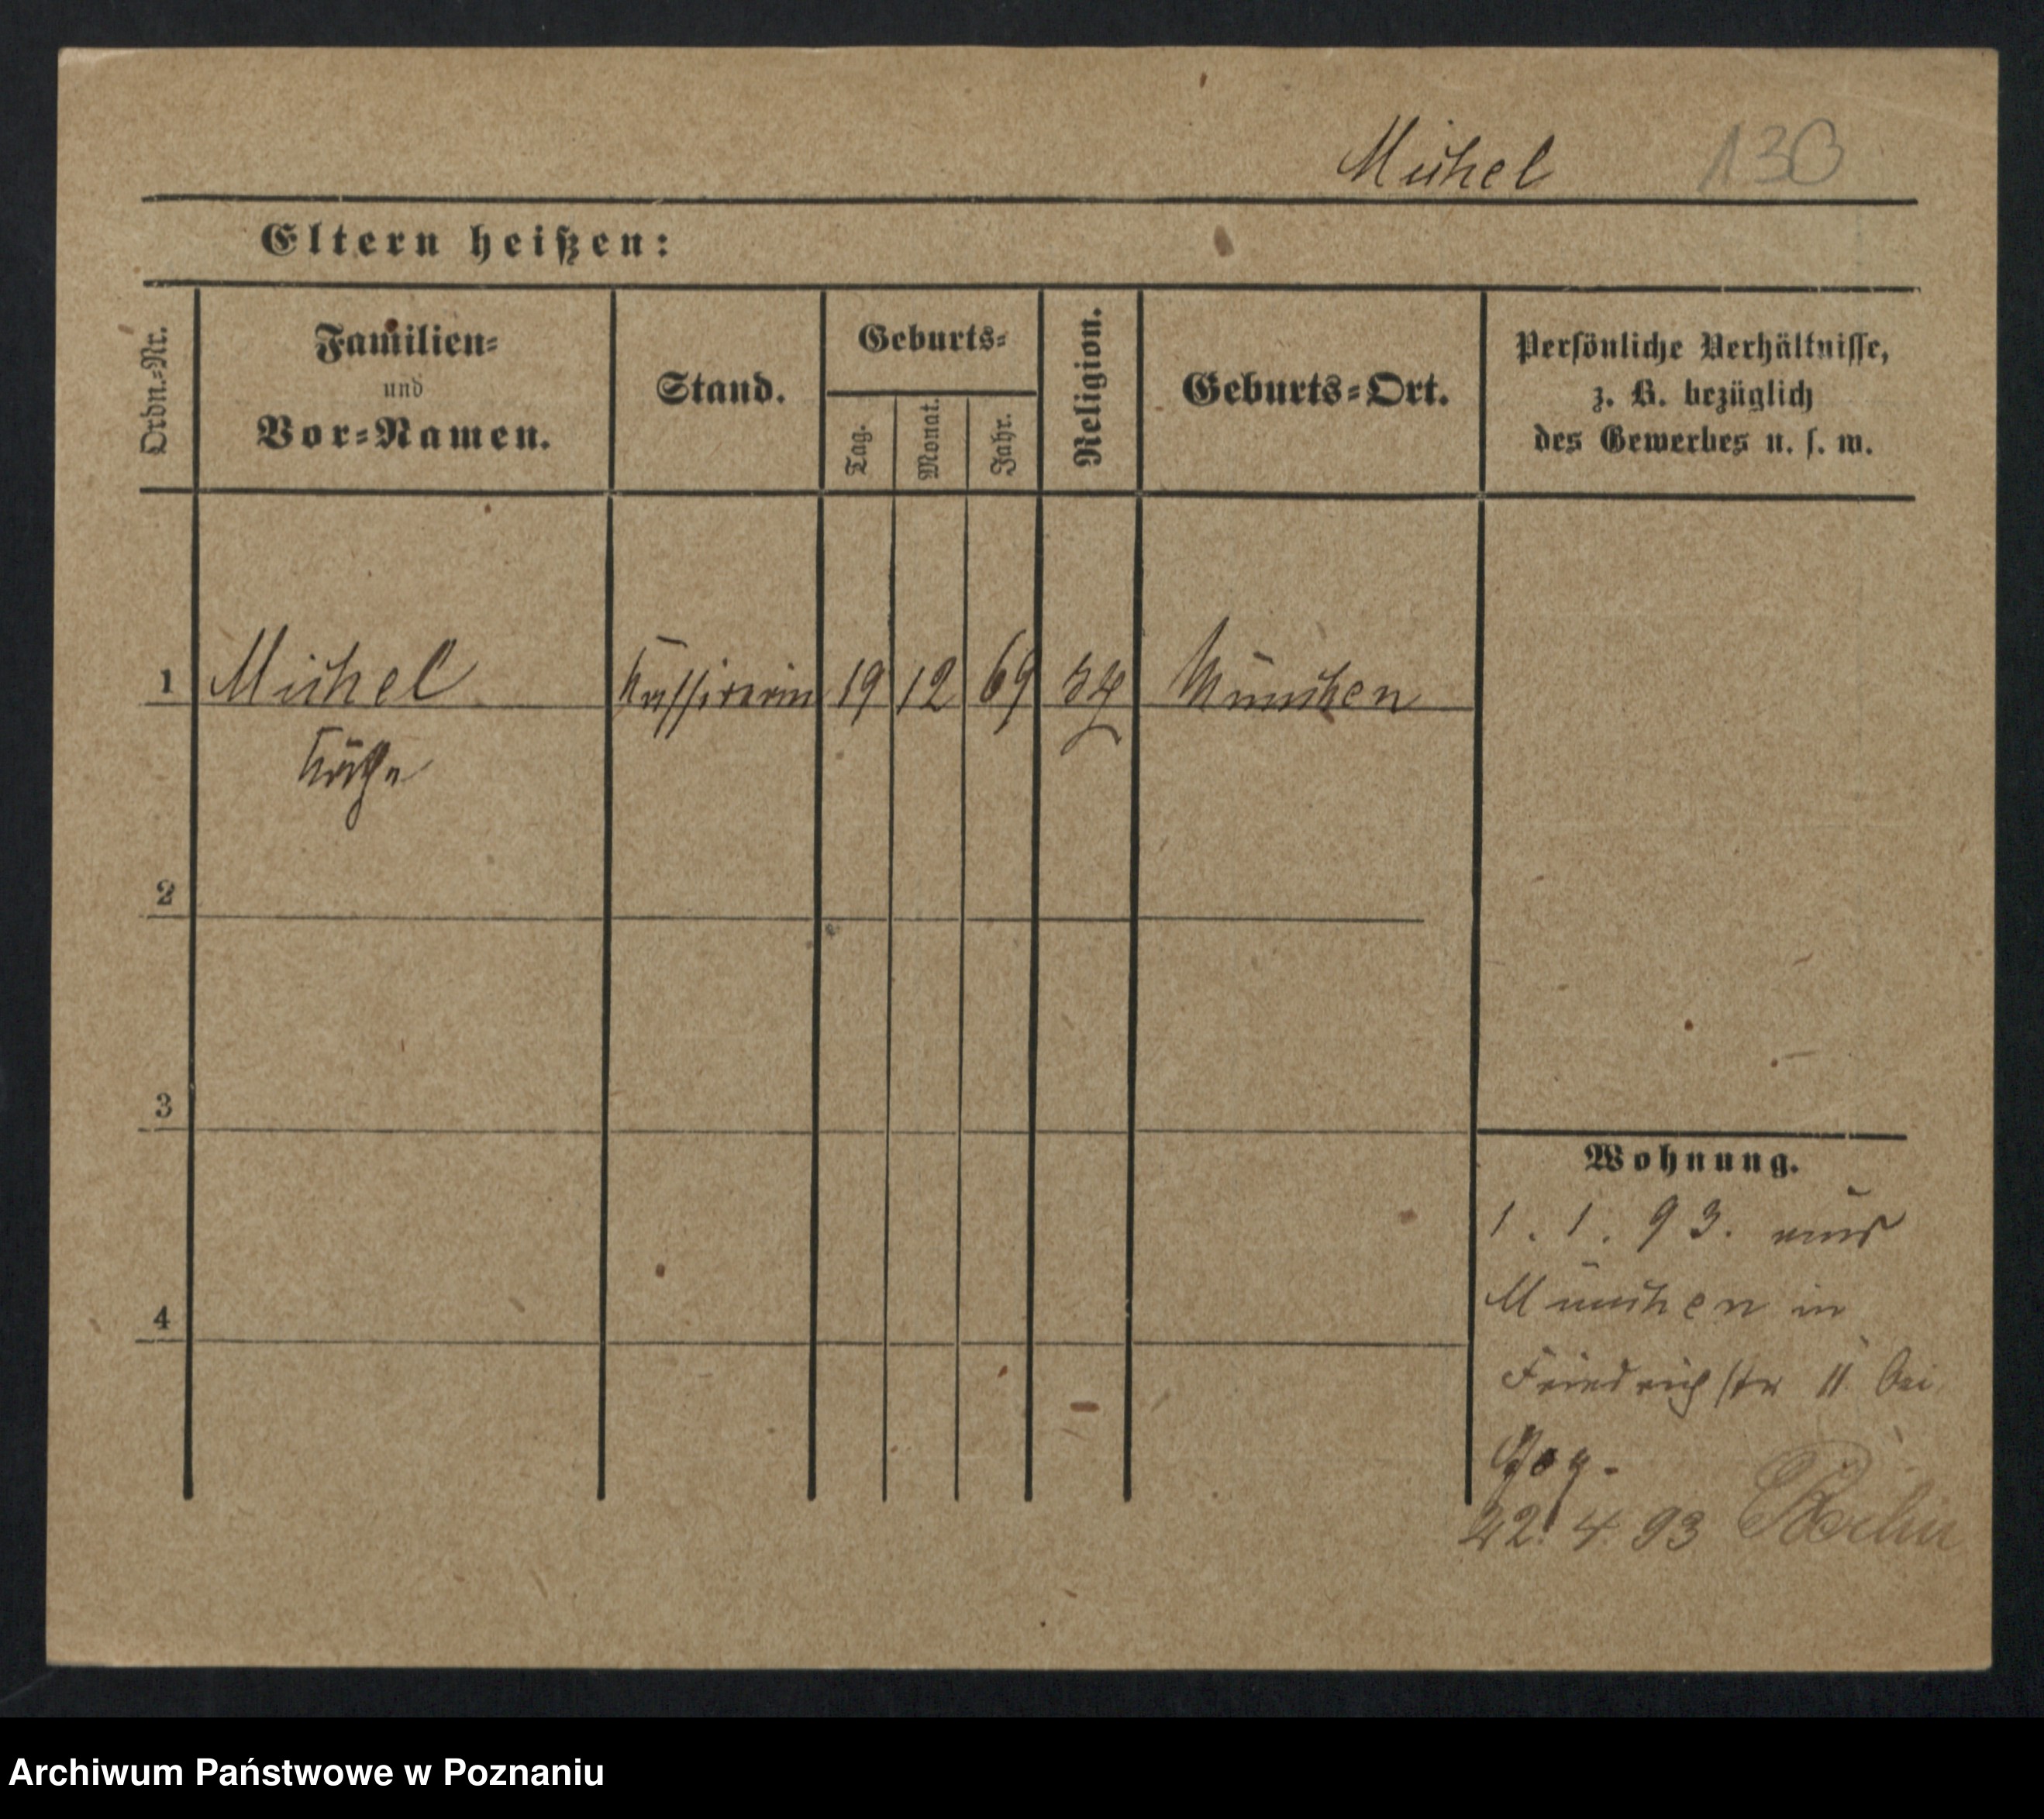 Michel 130
Eltern heißen:
Ordn.-Nr.
Familien-
und
Vor-Namen.
Stand.
Geburts-
Tag.
Monat.
Jahr.
Religion.
Geburts-Ort.
Persönliche Verhältnisse,
z. B. bezüglich
des Gewerbes u. s. w.
1 Michel Kassirerin 19 12 69 München
Käthe
2
3
4
Wohnung.
1. 1. 93. aus
München in
Friedrichstr 11 bei
22. 4. 93
Archiwum Państwowe w Poznaniu